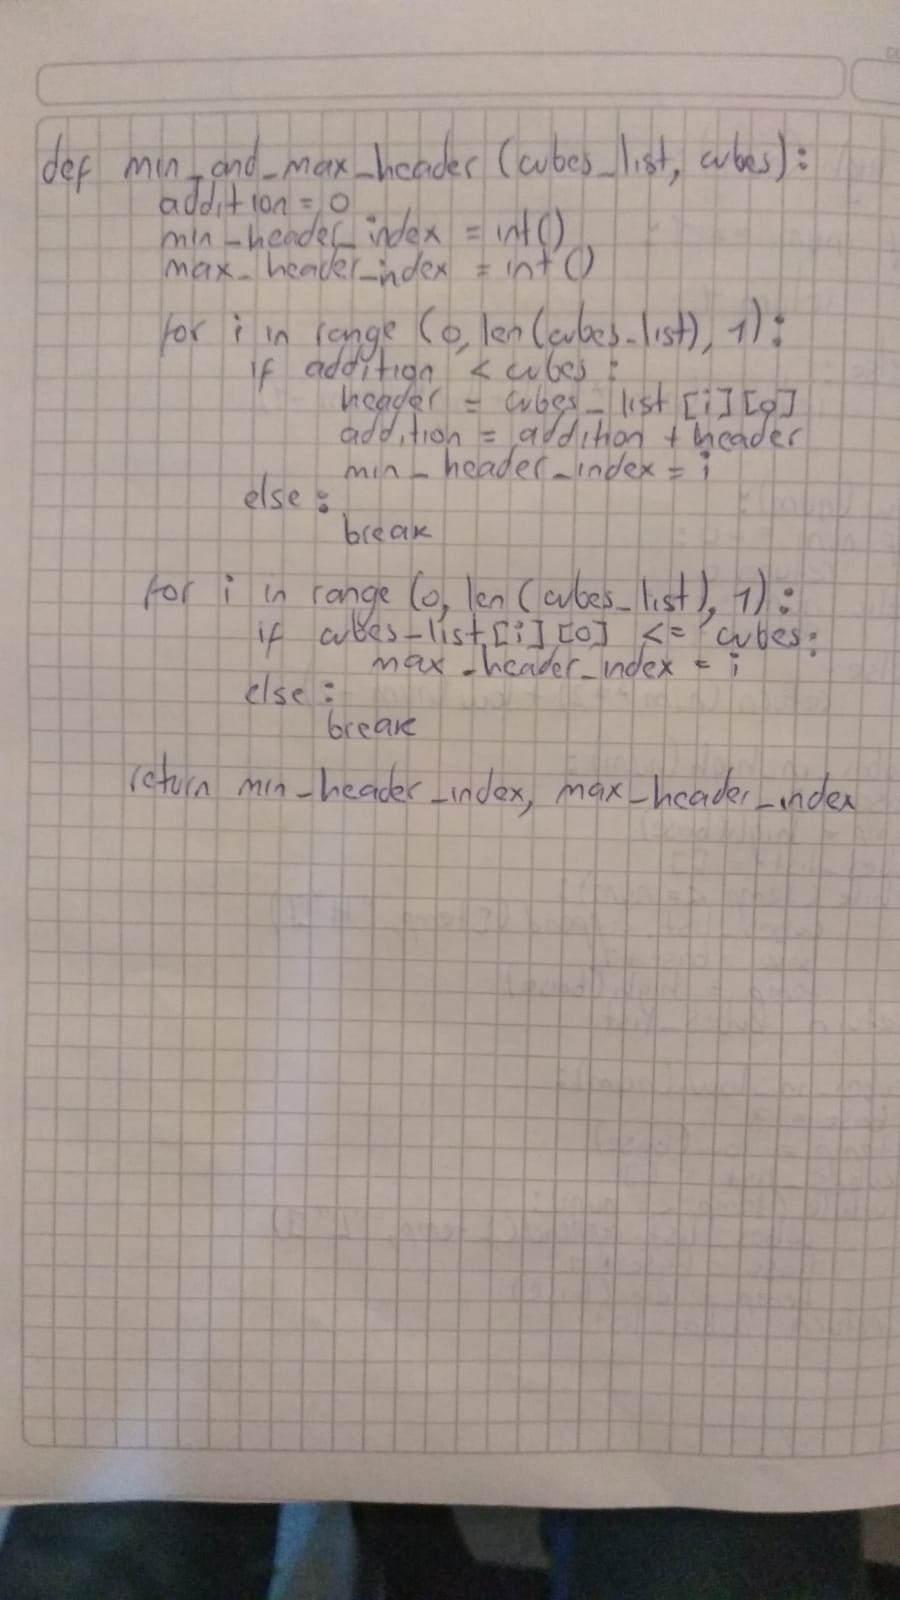 def min_and_max_header (cubes_list, cubes):
addition = 0
min_header_index = int()
max_header_index = int()
for i in range (0, len(cubes_list), 1):
if addition < cubes:
header = cubes_list [i][0]
addition = addition + header
min_header_index = i
else:
break
for i in range (0, len(cubes_list), 1):
if cubes_list[i][0] <= cubes:
max_header_index = i
else:
break
return min_header_index, max_header_index